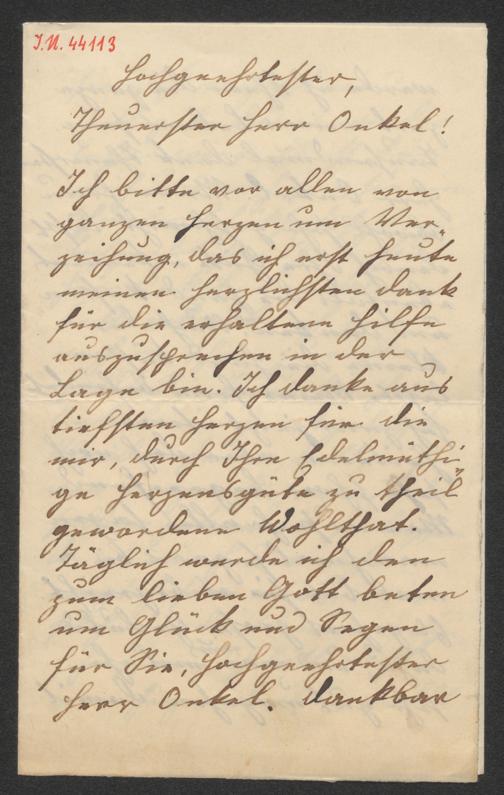 J.N. 44113
Hochgeehrtester,
Theuerster Herr Onkel!
Ich bitte vor allen von
ganzen Herzen um Ver-
zeihung, das ich erst heute
meinen herzlichsten Dank
für die erhaltene Hilfe
auszusprechen in der
Lage bin. Ich danke aus
tiefsten Herzen für die
mir, durch Ihre Edelmüthi-
ge Herzensgüte zu theil
gewordene Wohlthat.
Täglich werde ich den
zum lieben Gott beten
um Glück und Segen
für Sie, Hochgeehrtester
Herr Onkel. Dankbar